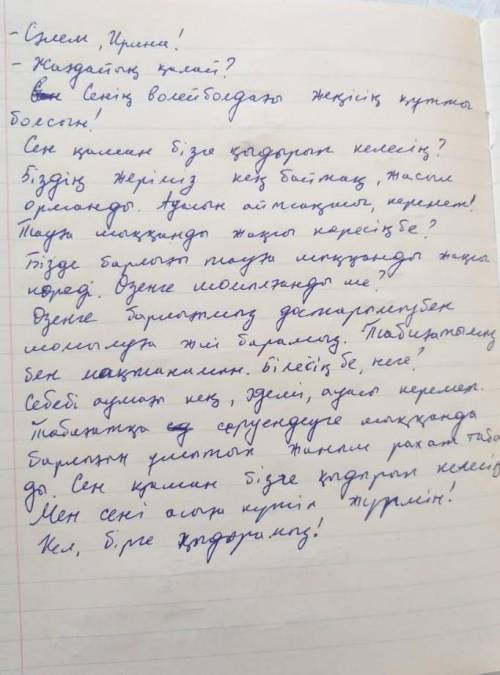 - Сәлем, Ирина!
- Жағдайың қалай?
Сенің волейболдағы жеңісің құтты
болсын!
Сен қашан бізге қыдырып келесің?
Біздің жеріміз кең байтақ, жасыл
орманды. Адалын айтсақшы, керемет!
Тауға шыққанды жақсы көресің бе?
Бізде барлығы тауға шыққанды жақсы
көреді. Өзенге шомылғанды ше?
Өзенге барлығымыз достарымызбен
шомылуға жиі барамыз. Табиғатымыз
бен мақтанамын. Білесің бе, неге?
Себебі аумағы кең, әдемі, ауасы керемет.
Табиғатқа серуендеуге шыққанда
барлығын ұмытып жаным рахат таба
ды. Сен қашан бізге қыдырып келесің
Мен сені асыға күтіп жүрмін!
Кел, бірге қыдырамыз!